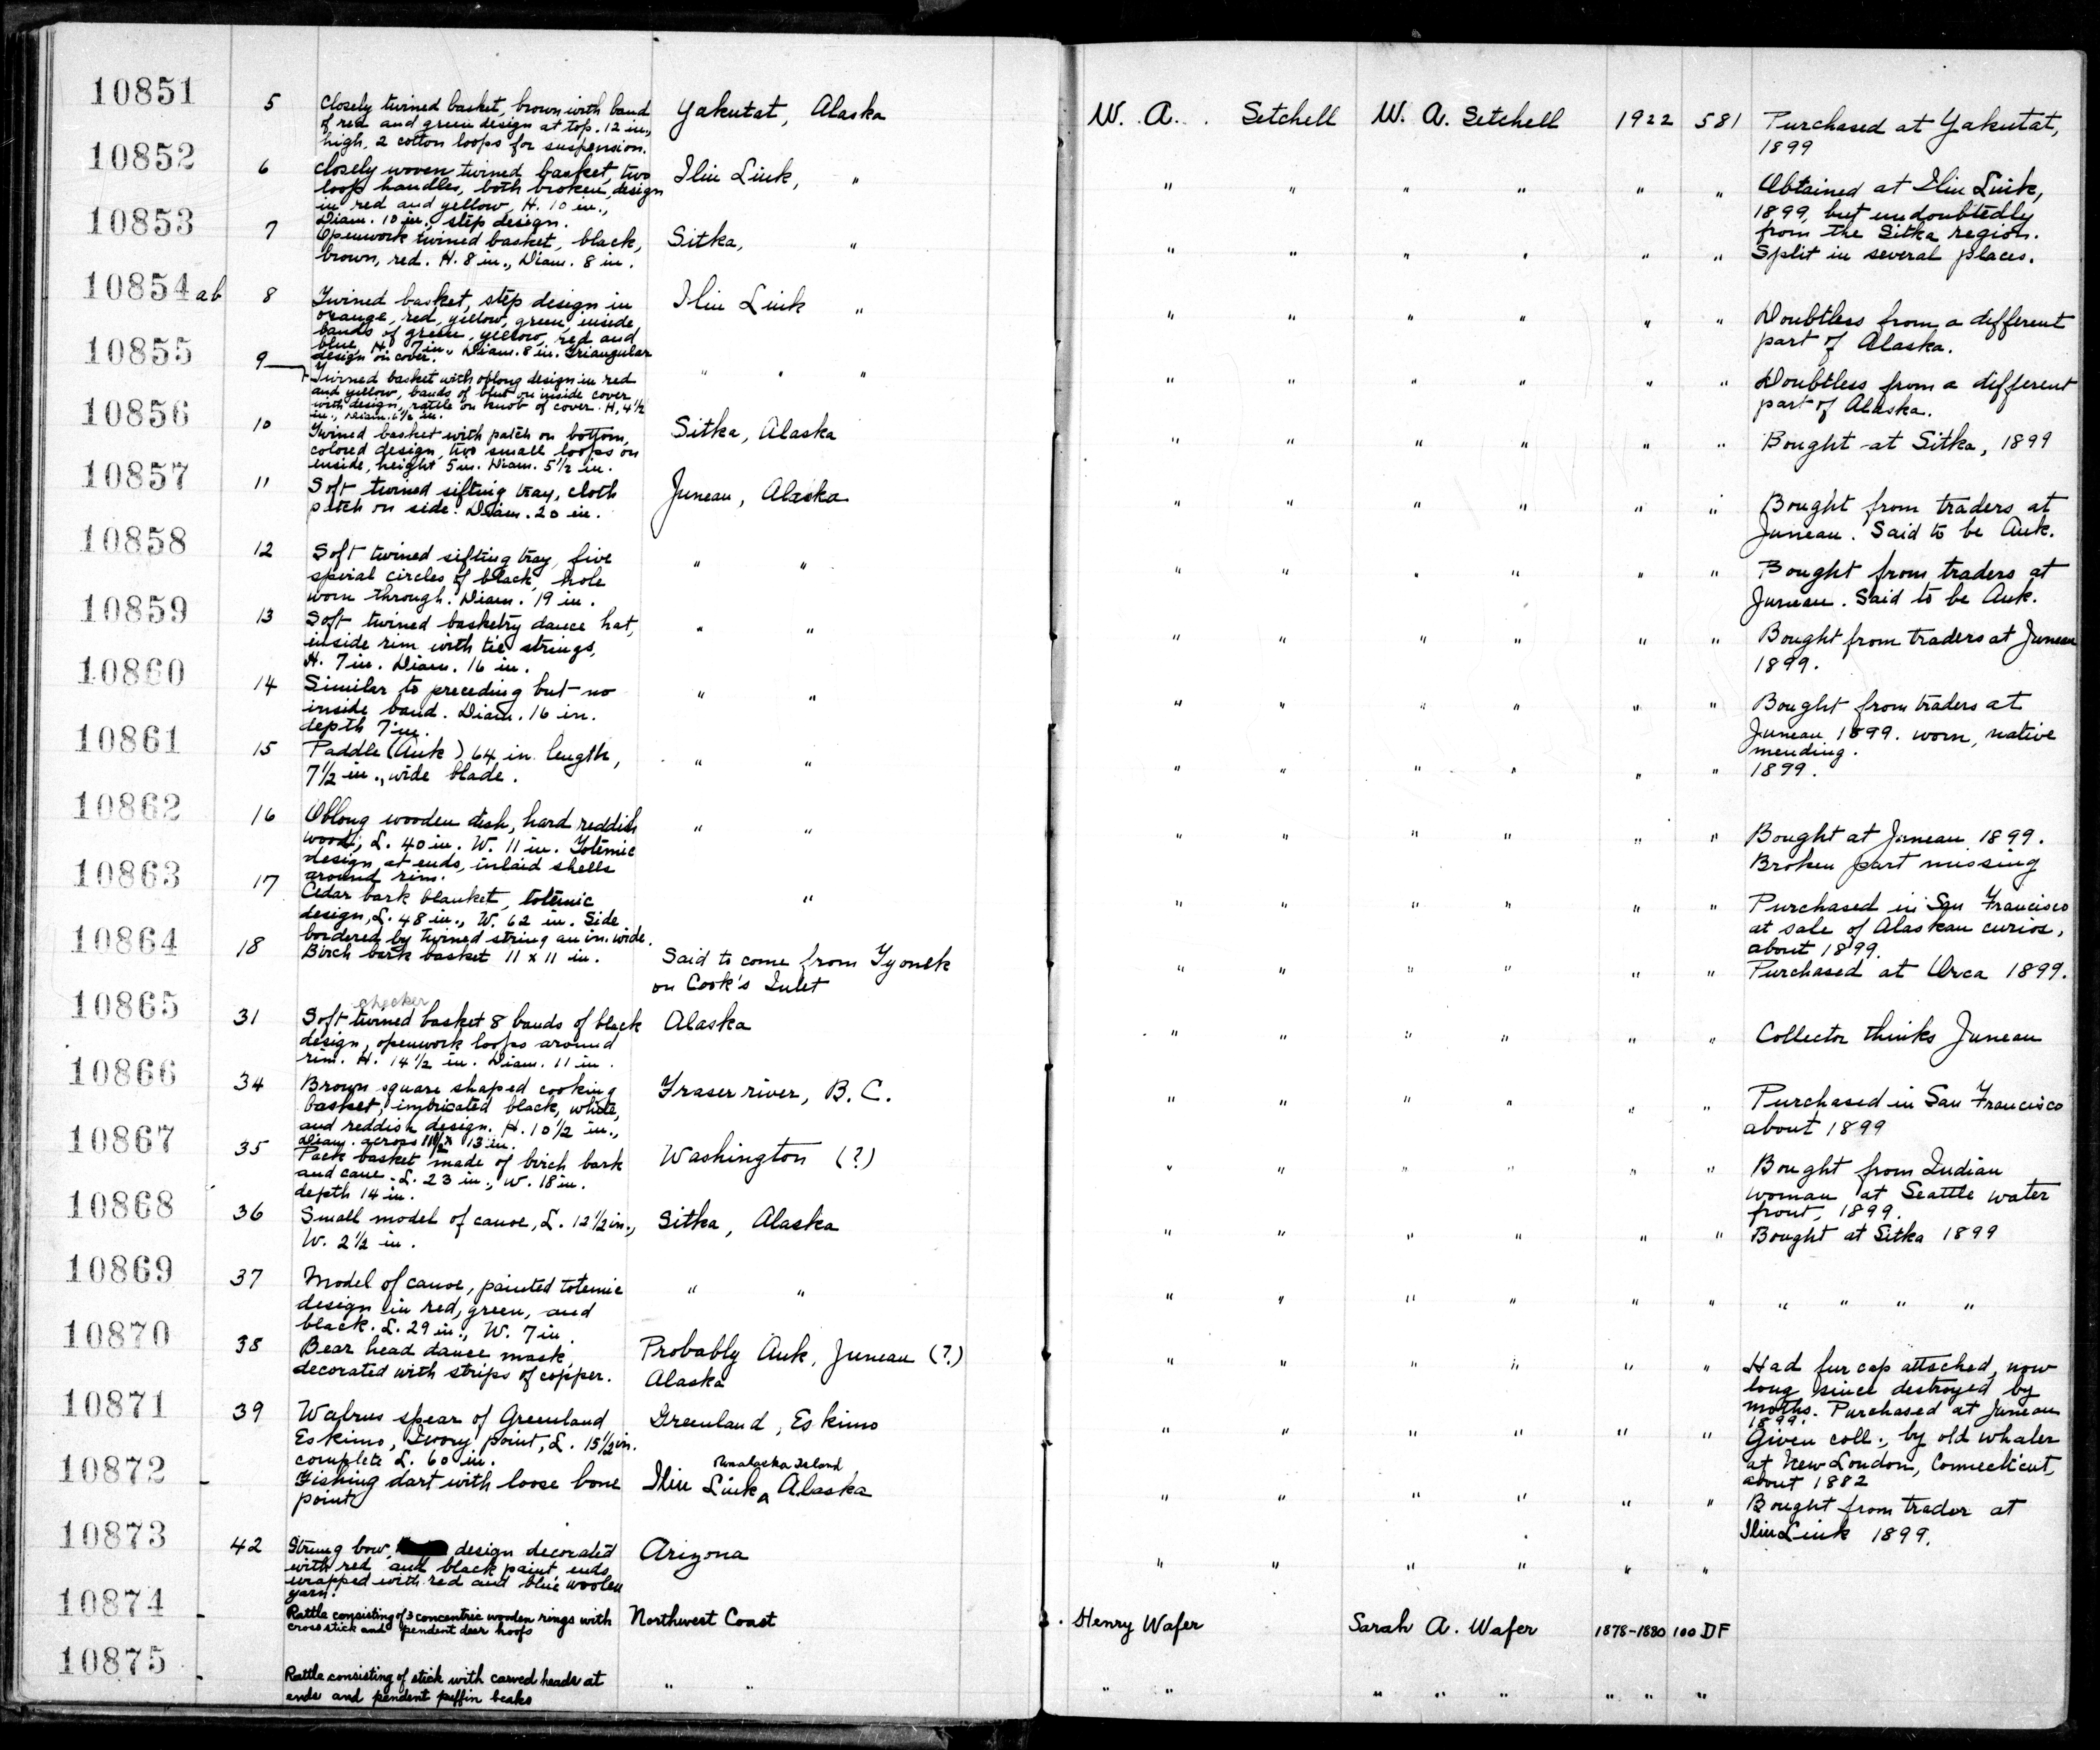 10851 5 Closely twined basket, brown with band Yakutat, Alaska W. A. Setchell W. A. Setchell 1922 581 Purchased at Yakutat,
of red and green design at top. 12 in., 1899
high, 2 cotton loops for suspension.
10852 6 Closely woven twined basket, two Iliu Liuk, " " " " " " " Obtained at Iliu Liuk,
loop handles, both broken, design 1899, but undoubtedly
in red and yellow, H. 10 in., from the Sitka region.
Diam. 10 in., step design.
10853 7 Openwork twined basket, black, Sitka, " " " " " " " Split in several places.
brown, red. H. 8 in., Diam. 8 in.
10854 ab 8 Twined basket, step design in Iliu Liuk " " " " " " " Doubtless from a different
orange, red, yellow, green, inside, part of Alaska.
bands of green, yellow, red and
blue, H. 7 in., Diam. 8 in. Triangular
design on cover.
10855 9 Twined basket with oblong design in red " " " " " " " " " Doubtless from a different
and yellow, bands of blue on inside cover part of Alaska.
with design, rattle on knob of cover. H, 4 1/2
in., Diam. 6 1/2 in.
10856 10 Twined basket with patch on bottom, Sitka, Alaska " " " " " " Bought at Sitka, 1899
colored design, two small loops on
inside, height 5 in. Diam. 5 1/2 in.
10857 11 Soft twined sifting tray, cloth Juneau, Alaska " " " " " " Bought from traders at
patch on side. Diam. 20 in. Juneau. Said to be Auk.
10858 12 Soft twined sifting tray, five " " " " " " " " Bought from traders at
spiral circles of black, hole Juneau. Said to be Auk.
worn through. Diam. 19 in.
10859 13 Soft twined basketry dance hat, " " " " " " " " Bought from traders at Juneau
inside rim with tie strings, 1899.
H. 7 in. Diam. 16 in.
10860 14 Similar to preceding but no " " " " " " " " Bought from traders at
inside band. Diam. 16 in. Juneau 1899. worn, native
depth 7 in. mending.
10861 15 Paddle (Auk) 64 in. length, " " " " " " " " 1899.
7 1/2 in., wide blade.
10862 16 Oblong wooden dish, hard reddish " " " " " " " " Bought at Juneau 1899.
wood; L. 40 in. W. 11 in. Totemic Broken part missing
design, at ends, inlaid shells
around rim.
10863 17 Cedar bark blanket, totemic " " " " " " " Purchased in San Francisco
design, L. 48 in., W. 62 in. Side at sale of Alaskan curios,
bordered by twined string an in. wide. about 1899.
10864 18 Birch bark basket 11 x 11 in. Said to come from Tyonek " " " " " " Purchased at Orca 1899.
on Cook's Inlet
checker
10865 31 Soft twined basket 8 bands of black Alaska " " " " " " Collector thinks Juneau
design, openwork loops around
rim. H. 14 1/2 in. Diam. 11 in.
10866 34 Brown square shaped cooking Fraser river, B. C. " " " " " " Purchased in San Francisco
basket, imbricated black, white, about 1899
and reddish design. H. 10 1/2 in.,
Diam. across 11 1/2 x 13 in.
10867 35 Pack basket made of birch bark Washington (?) " " " " " " Bought from Indian
and cane. L. 23 in., W. 18 in. woman at Seattle water
depth 14 in. front, 1899.
10868 36 Small model of canoe, L. 12 1/2 in., Sitka, Alaska " " " " " " Bought at Sitka 1899
W. 2 1/2 in.
10869 37 Model of canoe, painted totemic " " " " " " " " " " " "
design in red, green, and
black. L. 29 in., W. 7 in.
10870 38 Bear head dance mask, Probably Auk, Juneau (?) " " " " " " Had fur cap attached, now
decorated with strips of copper. Alaska long since destroyed by
moths. Purchased at Juneau
1899.
10871 39 Walrus spear of Greenland Greenland, Eskimo " " " " " " Given coll., by old whaler
Eskimo, Ivory point, L. 15 1/2 in. at New London, Connecticut,
complete L. 60 in. about 1882
Unalaska Island
10872 - Fishing dart with loose bone Iliu Liuk ^ Alaska " " " " " " Bought from trader at
points Iliu Liuk 1899.
10873 42 Strung bow, design decorated Arizona " " " " " "
with red and black paint, ends
wrapped with red and blue woolen
yarn.
10874 - Rattle consisting of 3 concentric wooden rings with Northwest Coast Henry Wafer Sarah A. Wafer 1878-1880 100 DF
cross stick and pendent deer hoofs
10875 - Rattle consisting of stick with carved heads at " " " " " " " " " "
ends and pendent puffin beaks